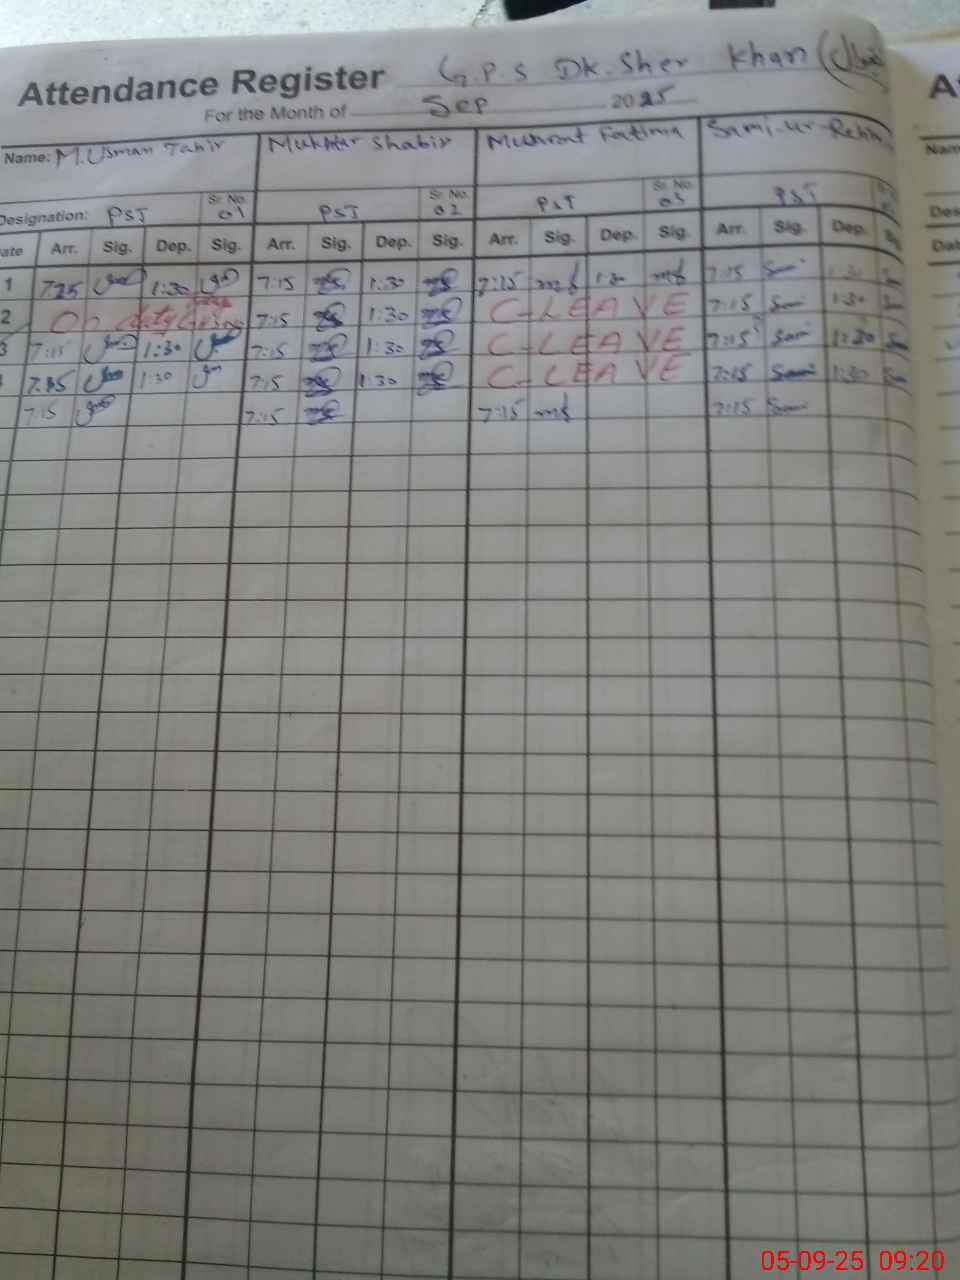 Attendance Register G.P.S Dk. Sher Khan
For the Month of Sep 2025
Name: M. Usman Tahir Mukhtar Shabir Fatima Sami-ur-Rehm
Designation: PST Sr. No. 01 PST Sr. No. 02 PST Sr. No. 03 PST
Date Arr. Sig. Dep. Sig. Arr. Sig. Dep. Sig. Arr. Sig. Dep. Sig. Arr. Sig. Dep.
1 7:25 1:30 7:15 1:30 7:15 mf 1:30 mf 7:15 Sami 1:30
2 On duty 7:15 1:30 C-LEAVE 7:15 Sami 1:30
3 7:15 1:30 7:15 1:30 C-LEAVE 7:15 Sami 1:30
7:15 1:30 C-LEAVE 7:15 Sami 1:30
7:15 7:15 7:15 mf 7:15 Sami
Nam
Des
Dat
05-09-25 09:20